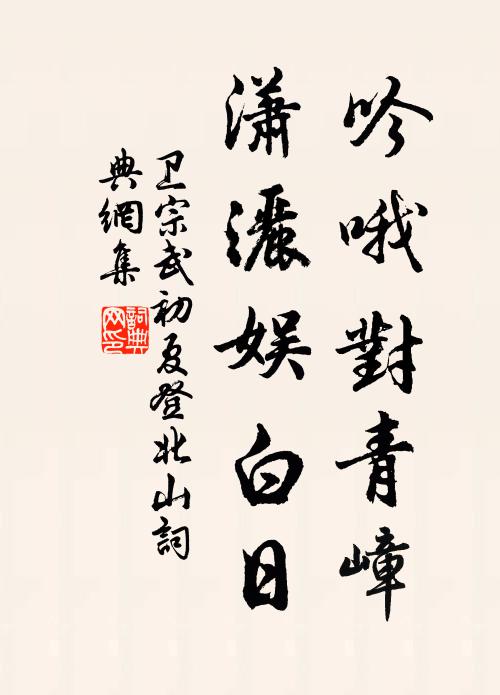 吟哦對青嶂
瀟灑娛白日
卫宗武初夏登北山詞
典網集
詞典网印